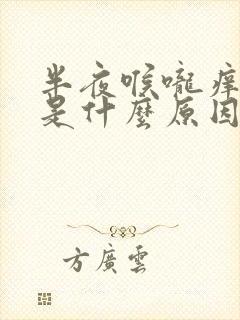 半夜喉嚨痒
是什麼原因
方廣雲